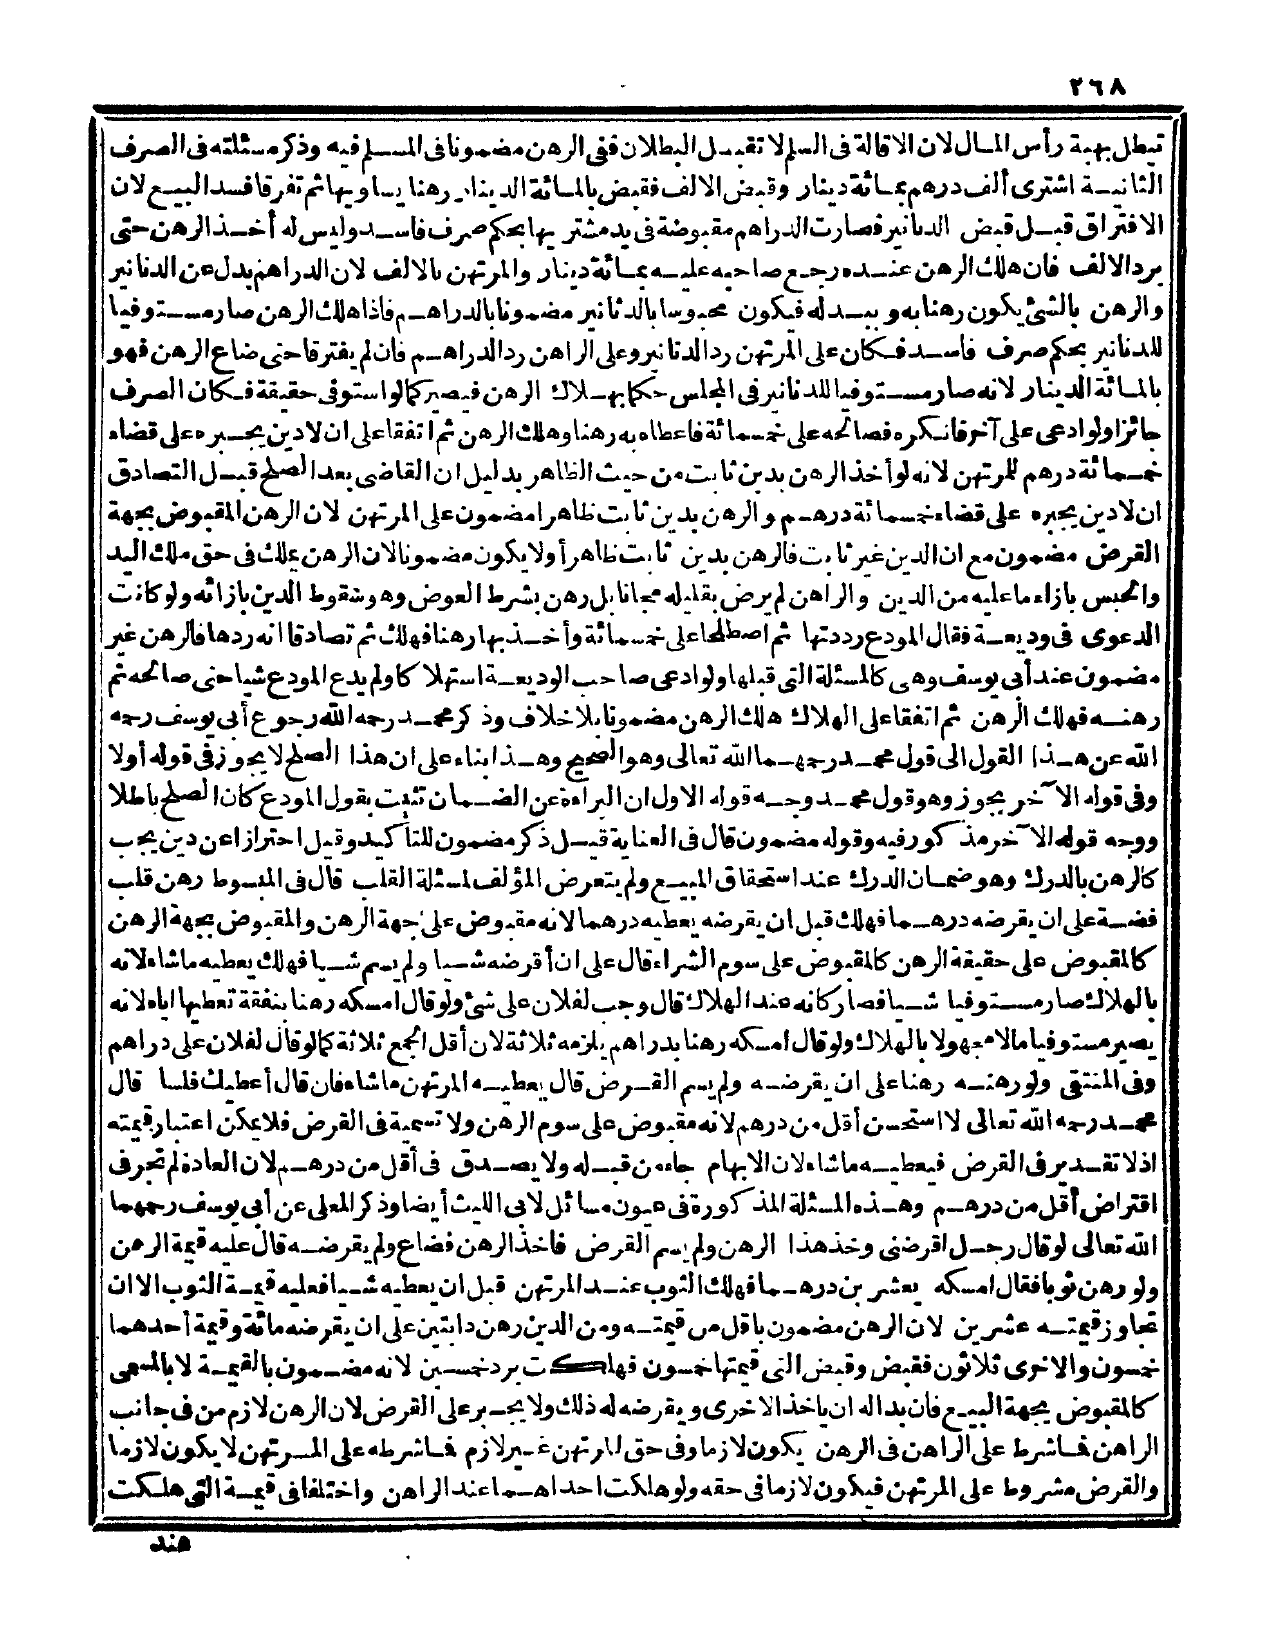 ٢٦٨
تبطل بهبة رأس المال لان الاقالة فى السلم لا تقبل البطلان ففى الرهن مضمونا فى المسلم فيه وذكر مسئلته فى الصرف
الثانية اشترى ألف درهم بمائة دينار وقبض الالف فقبض بالمائة الدينار رهنا يساويها ثم تفرقا فسد البيع لان
الافتراق قبل قبض الدنانير فصارت الدراهم مقبوضة فى يد مشتريها بحكم صرف فاسد وليس له أخذ الرهن حتى
يرد الالف فان هلك الرهن عنده رجع صاحبه عليه بمائة دينار والمرتهن بالالف لان الدراهم بدل عن الدنانير
والرهن بالشئ يكون رهنا به وببدله فيكون محبوسا بالدنانير مضمونا بالدراهم فاذا هلك الرهن صار مستوفيا
للدنانير بحكم صرف فاسد فكان على المرتهن رد الدنانير وعلى الراهن رد الدراهم فان لم يفترقا حتى ضاع الرهن فهو
بالمائة الدينار لانه صار مستوفيا للدنانير فى المجلس حكما بهلاك الرهن فيصير كما لو استوفى حقيقة فكان الصرف
جائزا ولو ادعى على آخر فانكره فصالحه على خمسمائة فاعطاه به رهنا وهلك الرهن ثم اتفقا على ان لا دين يجبره على قضاء
خمسمائة درهم للمرتهن لانه لو أخذ الرهن بدين ثابت من حيث الظاهر بدليل ان القاضى بعد الصلح قبل التصادق
ان لا دين يجبره على قضاء خمسمائة درهم والرهن بدين ثابت ظاهرا مضمون على المرتهن لان الرهن المقبوض بجهة
القرض مضمون مع ان الدين غير ثابت فالرهن بدين ثابت ظاهرا أولا يكون مضمونا لان الرهن يملك فى حق ملك اليد
والحبس بازاء ما عليه من الدين والراهن لم يرض بقليله مجانا بل رهن بشرط العوض وهو سقوط الدين بازائه ولو كانت
الدعوى فى وديعة فقال المودع رددتها ثم اصطلحا على خمسمائة وأخذ بها رهنا فهلك ثم تصادقا انه ردها فالرهن غير
مضمون عند أبى يوسف وهى كالمسئلة التى قبلها ولو ادعى صاحب الوديعة استهلاكا ولم يدع المودع شيا حتى صالحه ثم
رهنه فهلك الرهن ثم اتفقا على الهلاك هلك الرهن مضمونا بلا خلاف وذكر محمد رحمه الله رجوع أبى يوسف رحمه
الله عن هذا القول الى قول محمد رحمهما الله تعالى وهو الصحيح وهذا بناء على ان هذا الصلح لا يجوز فى قوله أولا
وفى قوله الآخر يجوز وهو قول محمد وجه قوله الاول ان البراءة عن الضمان تثبت بقول المودع كان الصلح باطلا
ووجه قوله الآخر مذكور فيه وقوله مضمون قال فى العناية قيل ذكر مضمون للتأكيد وقيل احترازا عن دين يجب
كالرهن بالدرك وهو ضمان الدرك عند استحقاق المبيع ولم يتعرض المؤلف لمسئلة القلب قال فى المبسوط رهن قلب
فضة على ان يقرضه درهما فهلك قبل ان يقرضه يعطيه درهما لانه مقبوض على جهة الرهن والمقبوض بجهة الرهن
كالمقبوض على حقيقة الرهن كالمقبوض على سوم الشراء قال على ان أقرضه شيا ولم يسم شيا فهلك يعطيه ما شاء لانه
بالهلاك صار مستوفيا شيا فصار كانه عند الهلاك قال وجب لفلان على شئ ولو قال امسكه رهنا بنفقة تعطيها اياه لانه
يصير مستوفيا مالا مجهولا بالهلاك ولو قال امسكه رهنا بدراهم يلزمه ثلاثة لان أقل الجمع ثلاثة كما لو قال لفلان على دراهم
وفى المنتقى ولو رهنه رهنا على ان يقرضه ولم يسم القرض قال يعطيه المرتهن ما شاء فان قال أعطيك فلسا قال
محمد رحمه الله تعالى لا استحسن أقل من درهم لانه مقبوض على سوم الرهن ولا تسمية فى القرض فلا يمكن اعتبار قيمته
اذ لا تقدير فى القرض فيعطيه ما شاء لان الابهام جاء من قبله ولا يصدق فى أقل من درهم لان العادة لم تجر فى
اقتراض أقل من درهم وهذه المسئلة المذكورة فى عيون مسائل لابى الليث أيضا وذكر المعلى عن أبى يوسف رحمهما
الله تعالى لو قال رجل اقرضنى وخذ هذا الرهن ولم يسم القرض فاخذ الرهن فضاع ولم يقرضه قال عليه قيمة الرهن
ولو رهن ثوبا فقال امسكه بعشرين درهما فهلك الثوب عند المرتهن قبل ان يعطيه شيا فعليه قيمة الثوب الا ان
تجاوز قيمته عشرين لان الرهن مضمون باقل من قيمته ومن الدين رهن دابتين على ان يقرضه مائة وقيمة أحدهما
خمسون والاخرى ثلاثون فقبض وقبض التى قيمتها خمسون فهلكت يرد خمسين لانه مضمون بالقيمة لا بالمسمى
كالمقبوض بجهة البيع فان بدا له ان ياخذ الاخرى ويقرضه له ذلك ولا يجبر على القرض لان الرهن لازم من فى جانب
الراهن فاشرط على الراهن فى الرهن يكون لازما وفى حق المرتهن غير لازم فاشرطه على المرتهن لا يكون لازما
والقرض مشروط على المرتهن فيكون لازما فى حقه ولو هلكت احداهما عند الراهن واختلفا فى قيمة التى هلكت
هند